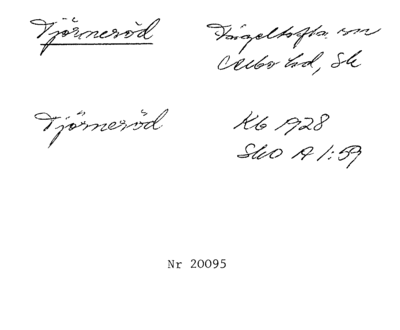 Tjörneröd Fågeltofta sn
Albo hd, Sk
Tjörneröd Kb 1928
SkO A 1:59
Nr 20095